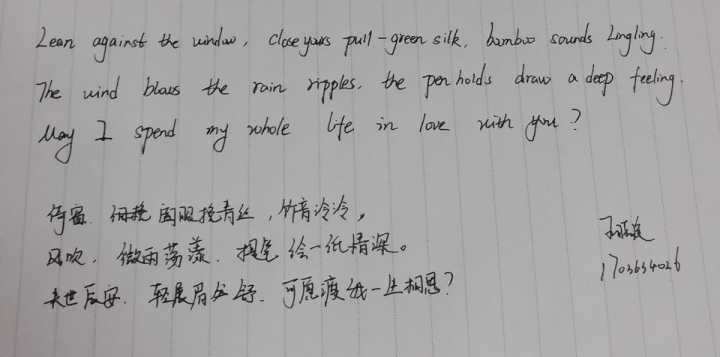 Lean against the window, close yours pull-green silk, bamboo sounds Lingling.
The wind blows the rain ripples, the pen holds draw a deep feeling.
May I spend my whole life in love with you?
倚窗. 闭眼挽青丝，竹音泠泠，
风吹. 微雨荡漾. 提笔绘一纸情深。
来世反安. 轻展眉 舒. 可愿渡我一生相思？
1703634026